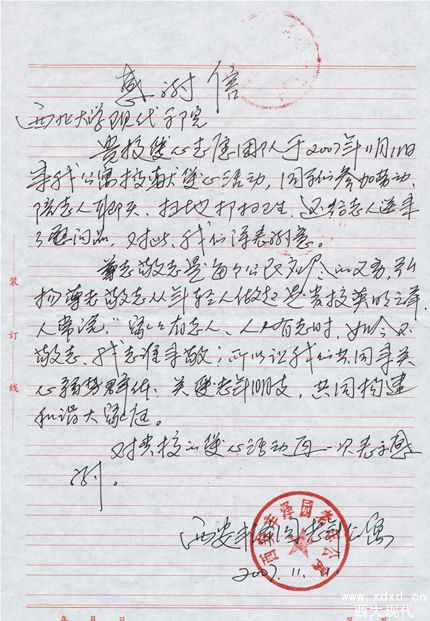 感谢信
西北大学现代学院
贵校爱心志愿团队于2007年11月11日
来我公寓投献爱心活动，同学们参加劳动、
陪老人聊天、扫地打扫卫生，还给老人送来
了慰问品，对此，我们深表谢意。
尊老敬老是每个公民的义务，弘
扬尊老敬老从年轻人做起是贵校英明之举，
人常说，"家家有老人、人人有老时，如今不
敬老，我老谁来敬；所以让我们共同来关
心弱势群体、关爱老年朋友，共同构建
和谐大家庭。
对贵校的爱心活动再一次表示感
谢。
西安 园老年公寓
2007.11.11
装订线
年 月 日
www.xdxd.cn
西大现代